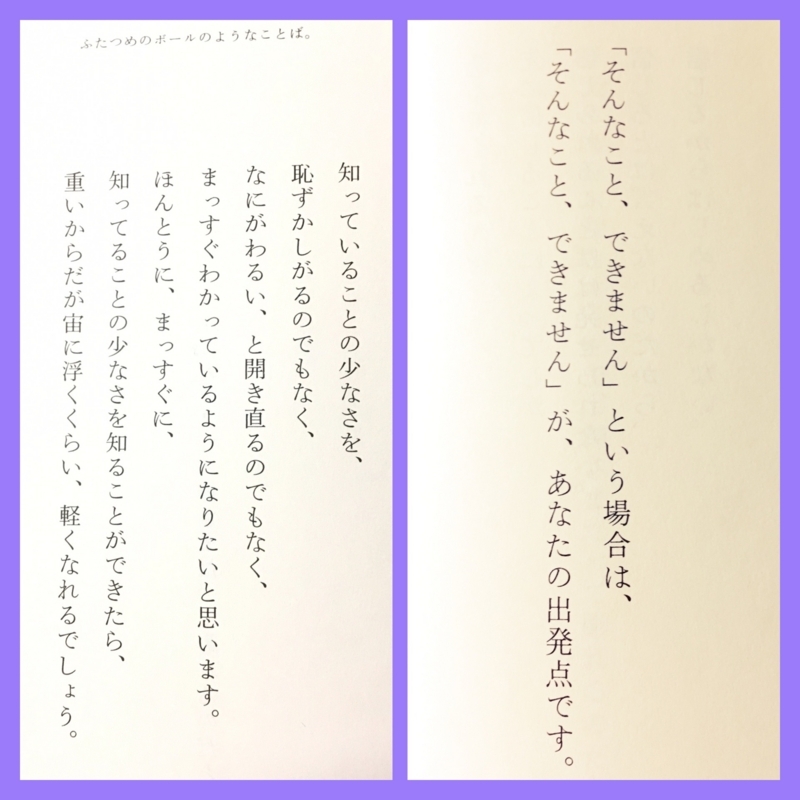 ふたつめのボールのようなことば。
知っていることの少なさを、
恥ずかしがるのでもなく、
なにがわるい、と開き直るのでもなく、
まっすぐわかっているようになりたいと思います。
ほんとうに、まっすぐに、
知ってることの少なさを知ることができたら、
重いからだが宙に浮くくらい、軽くなれるでしょう。
「そんなこと、できません」という場合は、
「そんなこと、できません」が、あなたの出発点です。